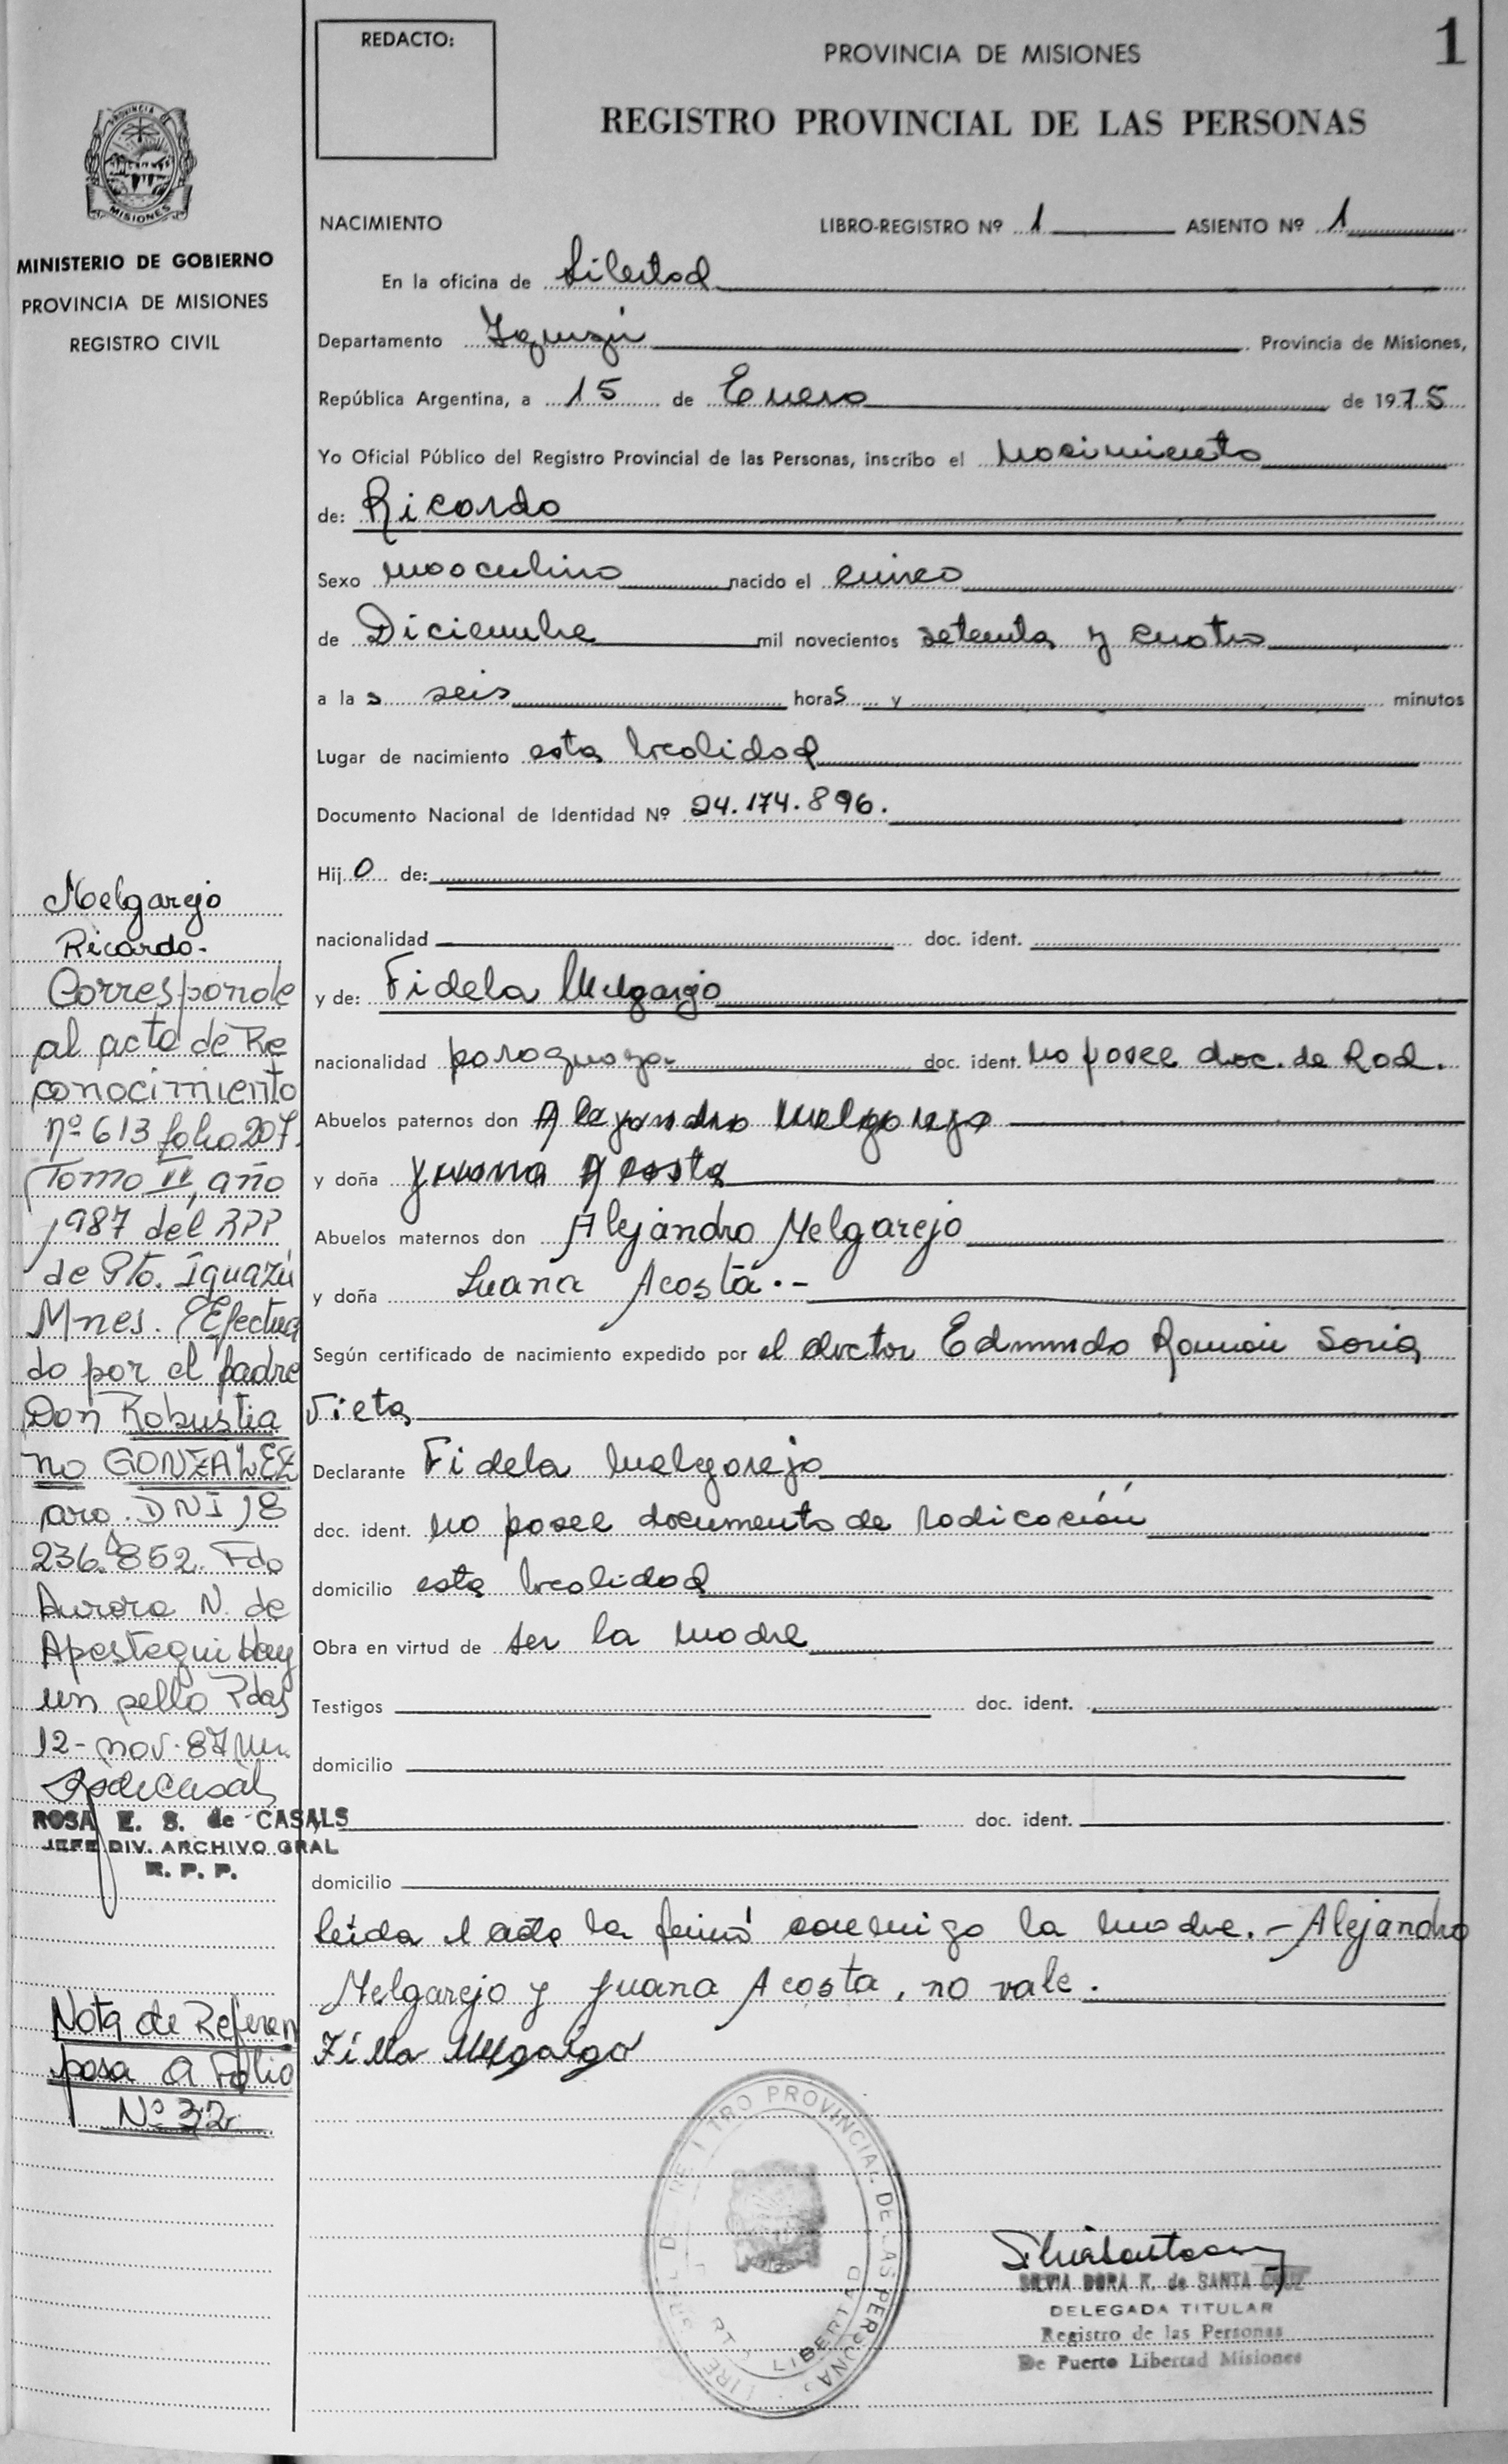 REDACTO:
PROVINCIA DE MISIONES
1
REGISTRO PROVINCIAL DE LAS PERSONAS
PROVINCIA
MISIONES
MINISTERIO DE GOBIERNO
PROVINCIA DE MISIONES
REGISTRO CIVIL
NACIMIENTO LIBRO-REGISTRO Nº 1 ASIENTO Nº 1
En la oficina de Libertad
Departamento Iguazú Provincia de Misiones,
República Argentina, a 15 de Enero de 1975
Yo Oficial Público del Registro Provincial de las Personas, inscribo el Nacimiento
de: Ricardo
Sexo masculino nacido el cinco
de Diciembre mil novecientos setenta y cuatro
a las seis horas y minutos
Lugar de nacimiento esta localidad
Documento Nacional de Identidad Nº 24.174.896.
Hijo de:
nacionalidad doc. ident.
y de: Fidela Melgarejo
nacionalidad paraguaya doc. ident. No posee doc. de Rad.
Abuelos paternos don Alejandro Melgarejo
y doña Juana Acosta
Abuelos maternos don Alejandro Melgarejo
y doña Juana Acosta.-
Según certificado de nacimiento expedido por el doctor Edmundo Ramón Soria
Vieta
Declarante Fidela Melgarejo
doc. ident. No posee documento de radicación
domicilio esta localidad
Obra en virtud de ser la madre
Testigos doc. ident.
domicilio
y doc. ident.
domicilio
Leída el acta la firmó conmigo la madre.- Alejandro
Melgarejo y Juana Acosta, no vale.
Melgarejo
Ricardo-
Corresponde
al acta de Re
conocimiento
nº 613 folio 207
Tomo II, año
1987 del RPP
de Pto. Iguazú
Mnes. Efectua
do por el padre
Don Robustia
no GONZALEZ
arg. DNI 18
236.852. Fdo
Aurora N. de
Apestegui Hay
un sello Pdas
12-nov.87
ROSA E. S. de CASALS
JEFE DIV. ARCHIVO GRAL
R. P. P.
Nota de Referen
pasa a Folio
Nº 32
REGISTRO PROVINCIAL DE LAS PERSONAS
LIBERTAD
SILVIA DORA K. de SANTA CRUZ
DELEGADA TITULAR
Registro de las Personas
De Puerto Libertad Misiones